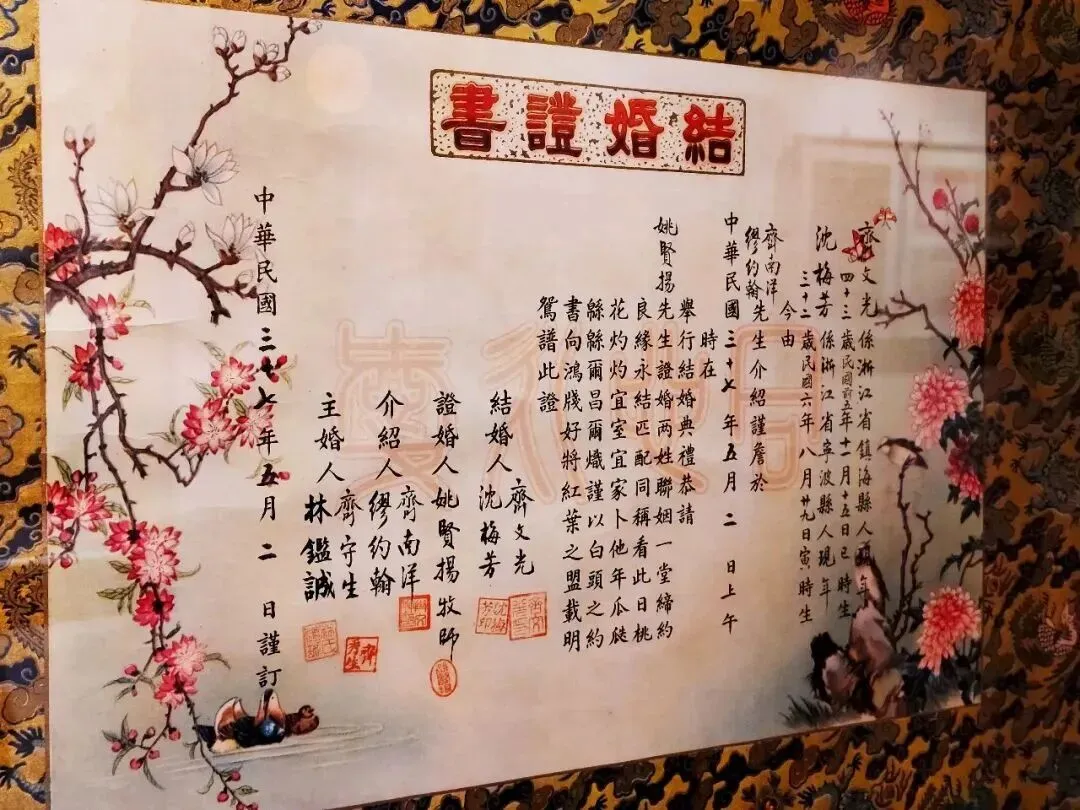 結婚證書
齊文光係浙江省鎮海縣人現年
四十三歲民國前五年十一月十五日巳時生
沈梅芳係浙江省寧波縣人現年
三十二歲民國六年八月廿九日寅時生
今由
齊南洋
繆約翰先生介紹謹詹於
中華民國三十七年五月二日上午
時在
舉行結婚典禮恭請
姚賢揚先生證婚两姓聯姻一堂締約
良緣永結匹配同稱看此日桃
花灼灼宜室宜家卜他年瓜瓞
緜緜爾昌爾熾謹以白頭之約
書向鴻牋好將紅葉之盟載明
鴛譜此證
結婚人 齊文光
沈梅芳
證婚人姚賢揚牧師
介紹人 齊南洋
繆約翰
主婚人 齊守生
林鑑誠
中華民國三十七年五月二日謹訂